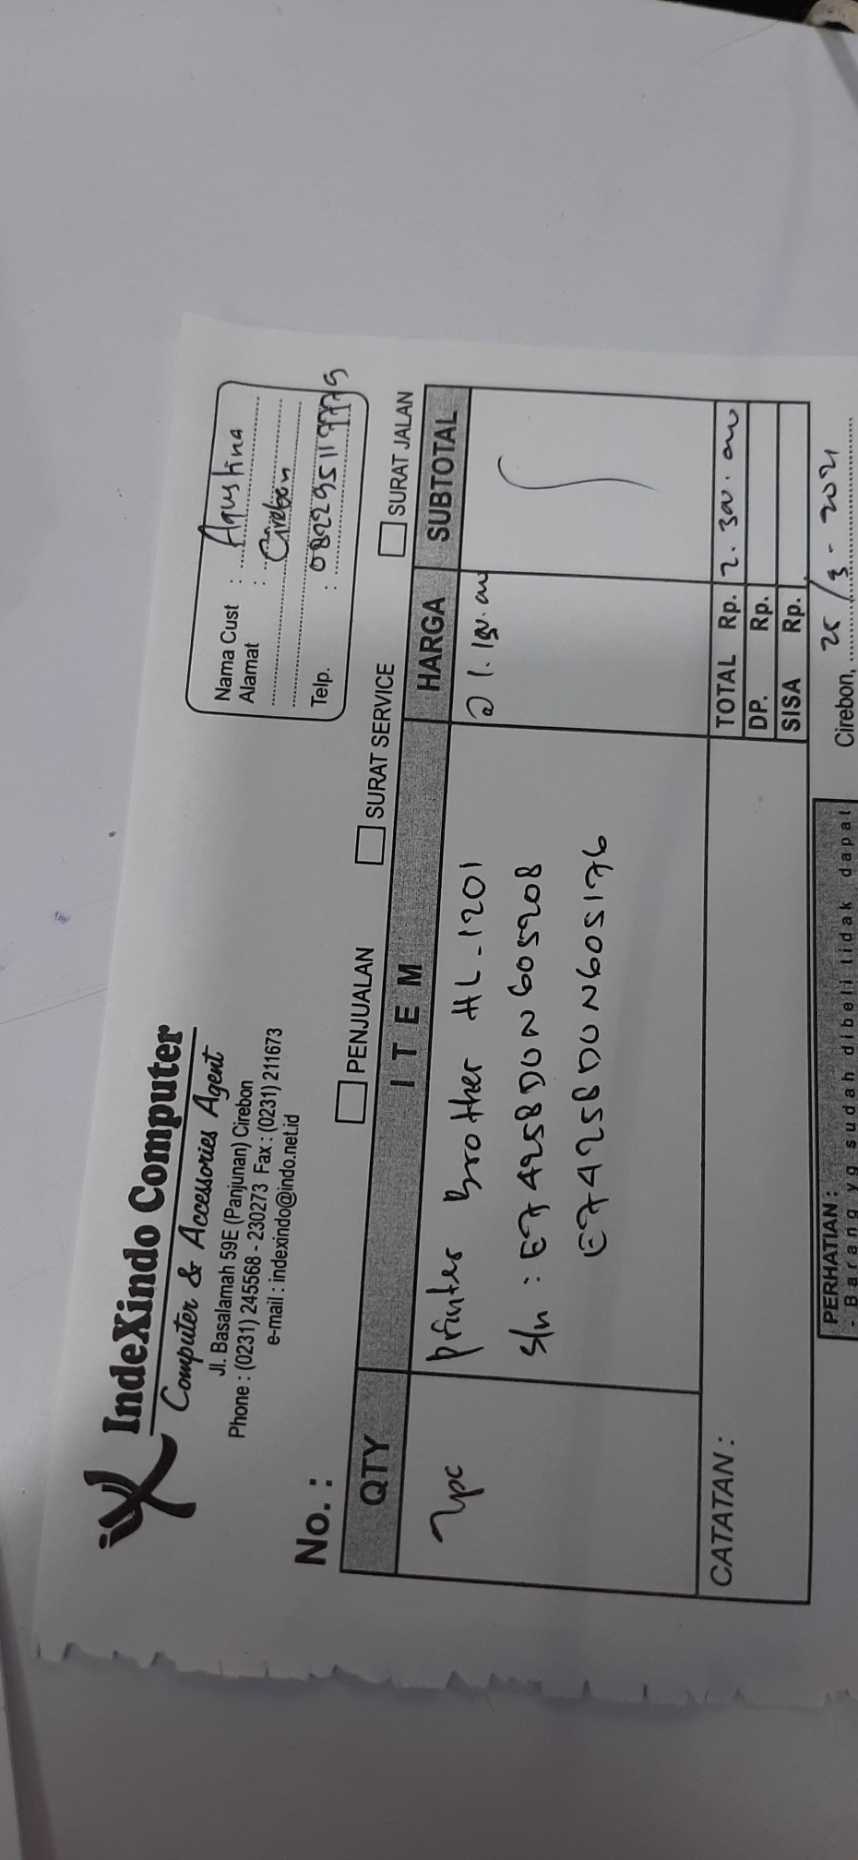 IndeXindo Computer
Computer & Accessories Agent
Jl. Basalamah 59E (Panjunan) Cirebon
Phone : (0231) 245568 - 230273 Fax : (0231) 211673
e-mail : indexindo@indo.net.id
Nama Cust : Agustina
Alamat : Cirebon
Telp. :
No. :
PENJUALAN SURAT SERVICE SURAT JALAN
QTY ITEM HARGA SUBTOTAL
2pc Printer Brother HL-1201 @ 1.150.000
S/n : E74258D0N605208
E74258D0N605176
CATATAN :
TOTAL Rp. 2.300.000
DP. Rp.
SISA Rp.
PERHATIAN :
- Barang yg sudah dibeli tidak dapat
Cirebon, 25/3-2021